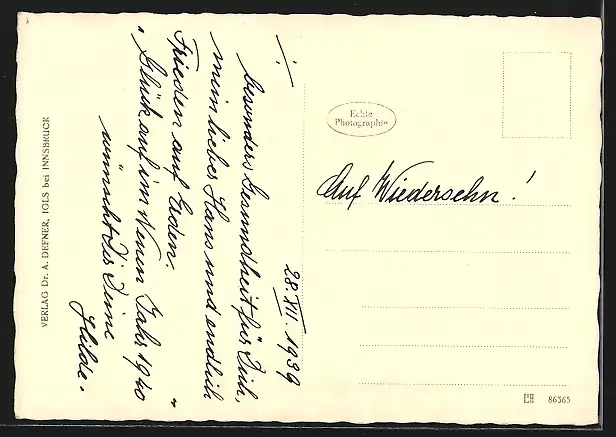 28.XII.1939
./.
besonders Gesundheit für Dich,
mein lieber Hans und endlich
Frieden auf Erden.
„Glück auf im Neuen Jahr 1940"
wünscht Dir Deine
Hilde.
Auf Wiedersehn!
Echte
Photographie
VERLAG Dr. A. DEFNER, IGLS bei INNSBRUCK
86363